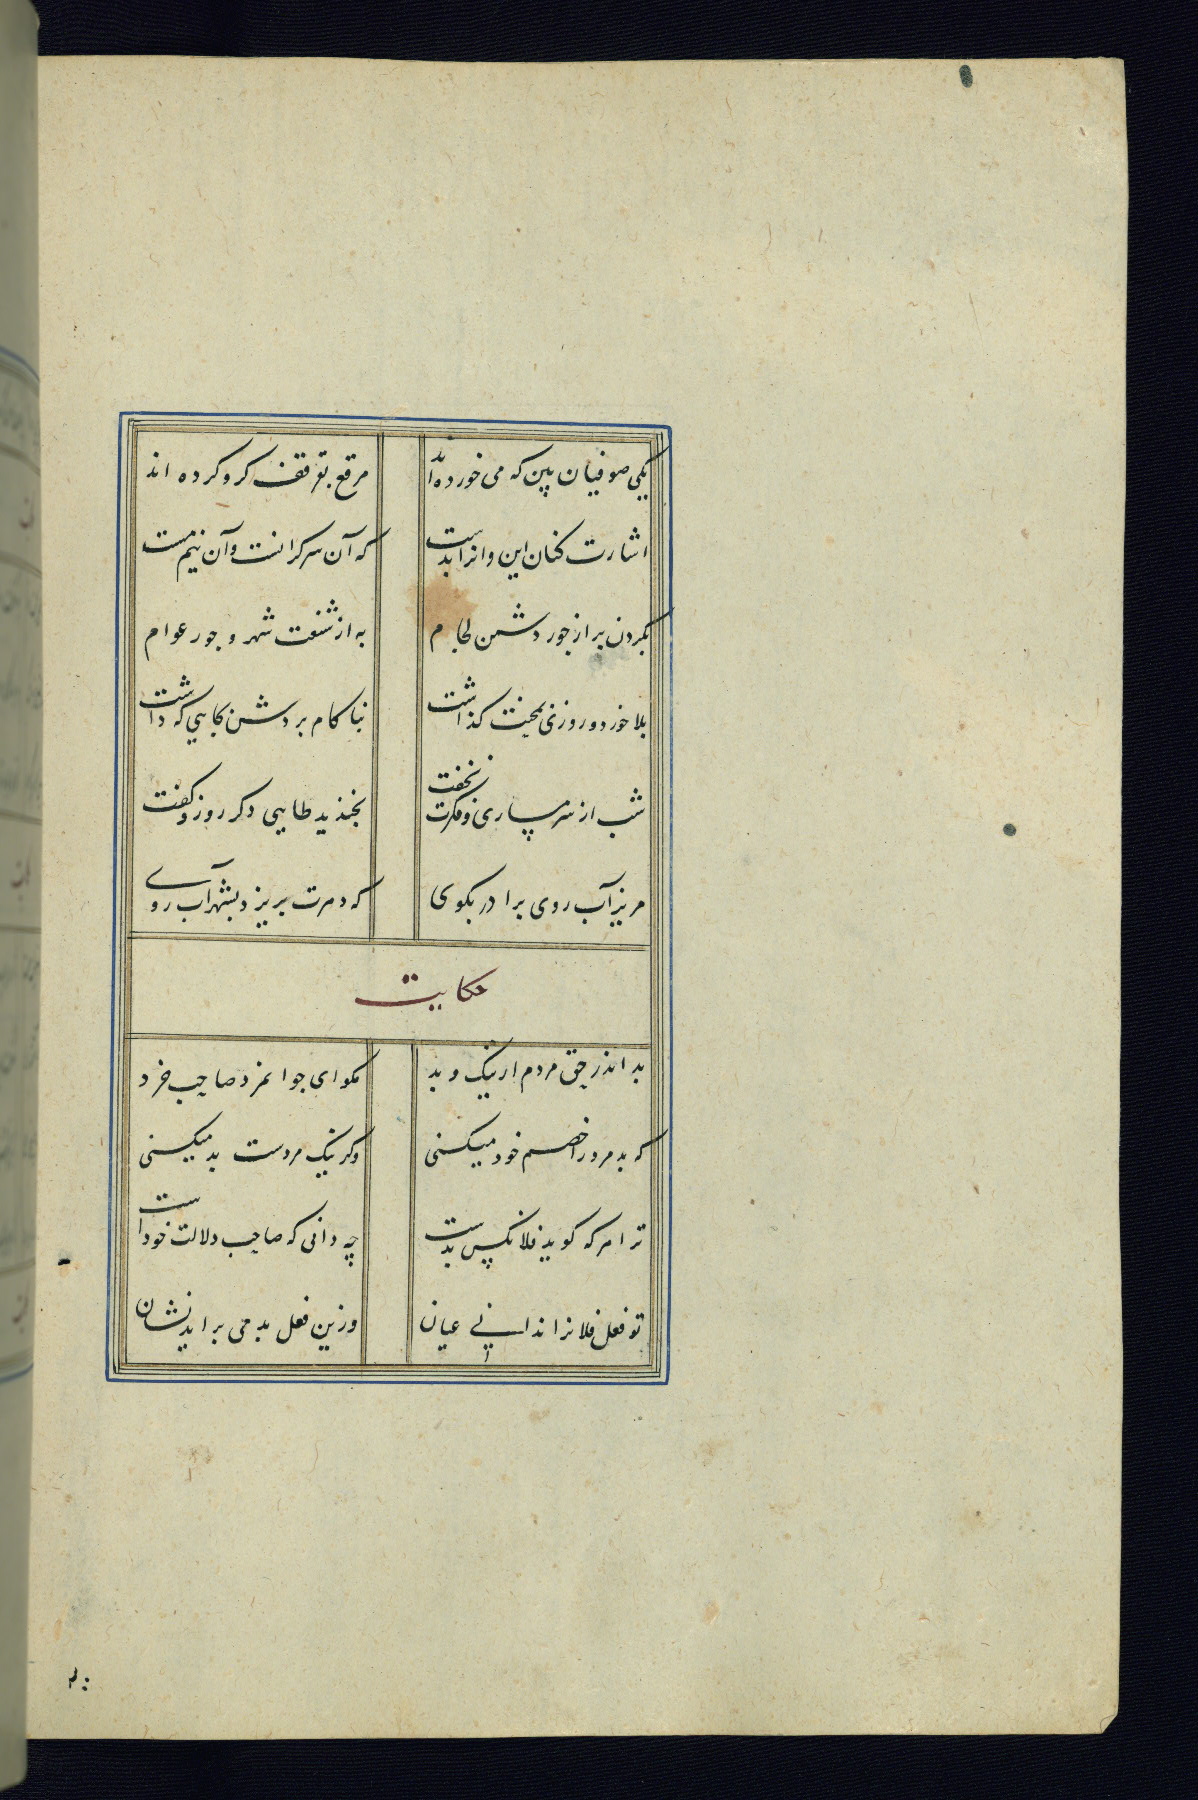 یکی صوفیان بین که می خورده اند
مرقع بتوقف کرو کرده اند
اشارت کنان این و انرا بدست
که آن سرکرانست و آن نیم مست
بکردن بر از جور دشمن لجام
به از شنعت شهر و جور عوام
بلا خورد و روزی بمحنت کذاشت
بناکام بردش بجایی که داشت
شب از شرمساری و فکرت نخفت
بخندید طایی دکر روز و کفت
مریز آب روی برادر بکوی
که دهرت بریزد بشهر آب روی
حکایت
بد اندر حق مردم از نیک و بد
مکو ای جوانمرد صاحب خرد
که بد مرد را خصم خود میکنی
وکر نیک مردست بد میکنی
ترا هر که کوید فلانکس بدست
چه دانی که صاحب دلالت خود است
تو فعل فلانرا ندانی عیان
وزین فعل بد می براید نشان